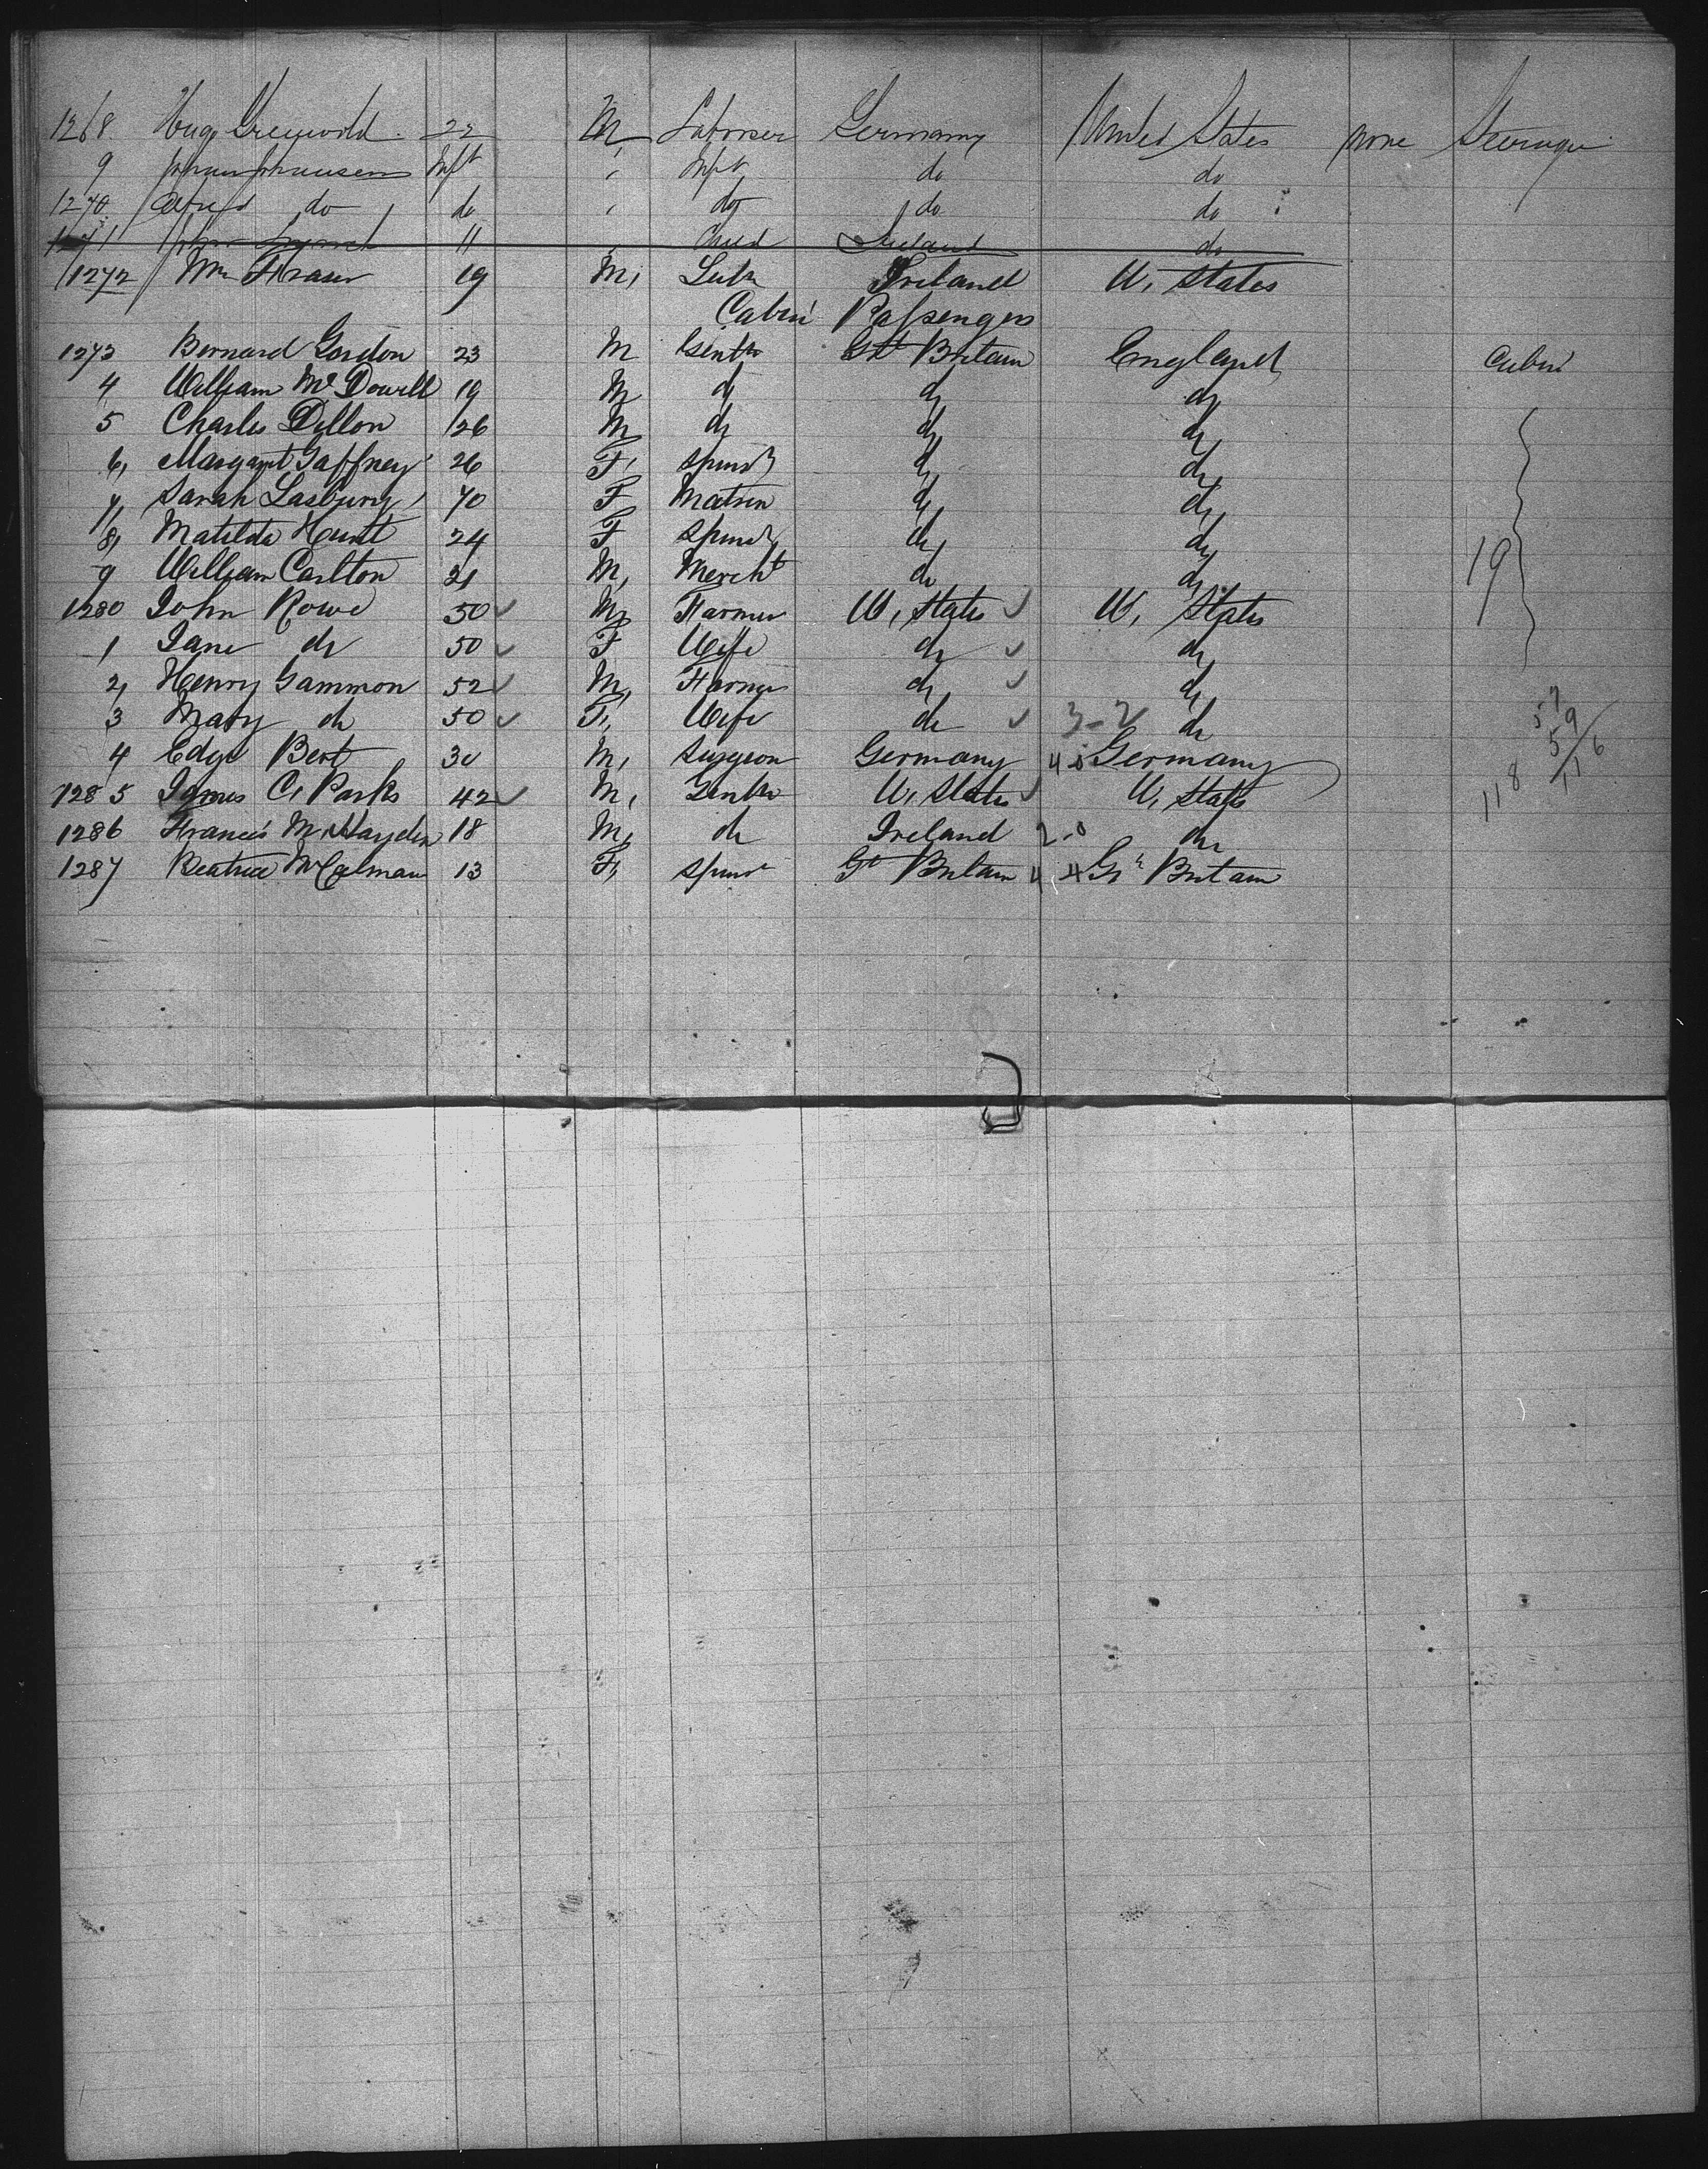 1268. Hugo 22 M, Laborer Germany United States none Steerage
9 Johan Johansen Inft Inft do do
1270 Alfred do do do do do
1271 John Lynch 11 Child Ireland do
1272 Wm Fraser 19 M, Ireland U, States
Cabin Passengers
1273 Bernard Gordon 23 M Gentn Gt Britain England Cabin
4 William McDowell 19 M do do do
5 Charles Dillon 26 M do do do
6, Margaret Gaffney 26 F, Spinsr do do
7, Sarah Lasbury 70 F Matron do do
8, Matilda Hunt 24 F Spinsr do do
9 William Carlton 21 M, Mercht do do 19
1280 John Rowe 50 M, Farmer U, States U, States
1 Jane do 50 F Wife do do
2, Henry Gammon 52 M, Farmer do do
3 Mary do 50 F, Wife do 3-2 do
4 Edge Bert 30 M, Surgeon Germany Germany
1285 James C, Parks 42 M, Gentn U, States U, States 118
1286 Francis M, Hayden 18 M, do Ireland 2-0 do
1287 Beatrice McCalman 13 F, Spinsr Gt Britain 4 4 Gt Britain